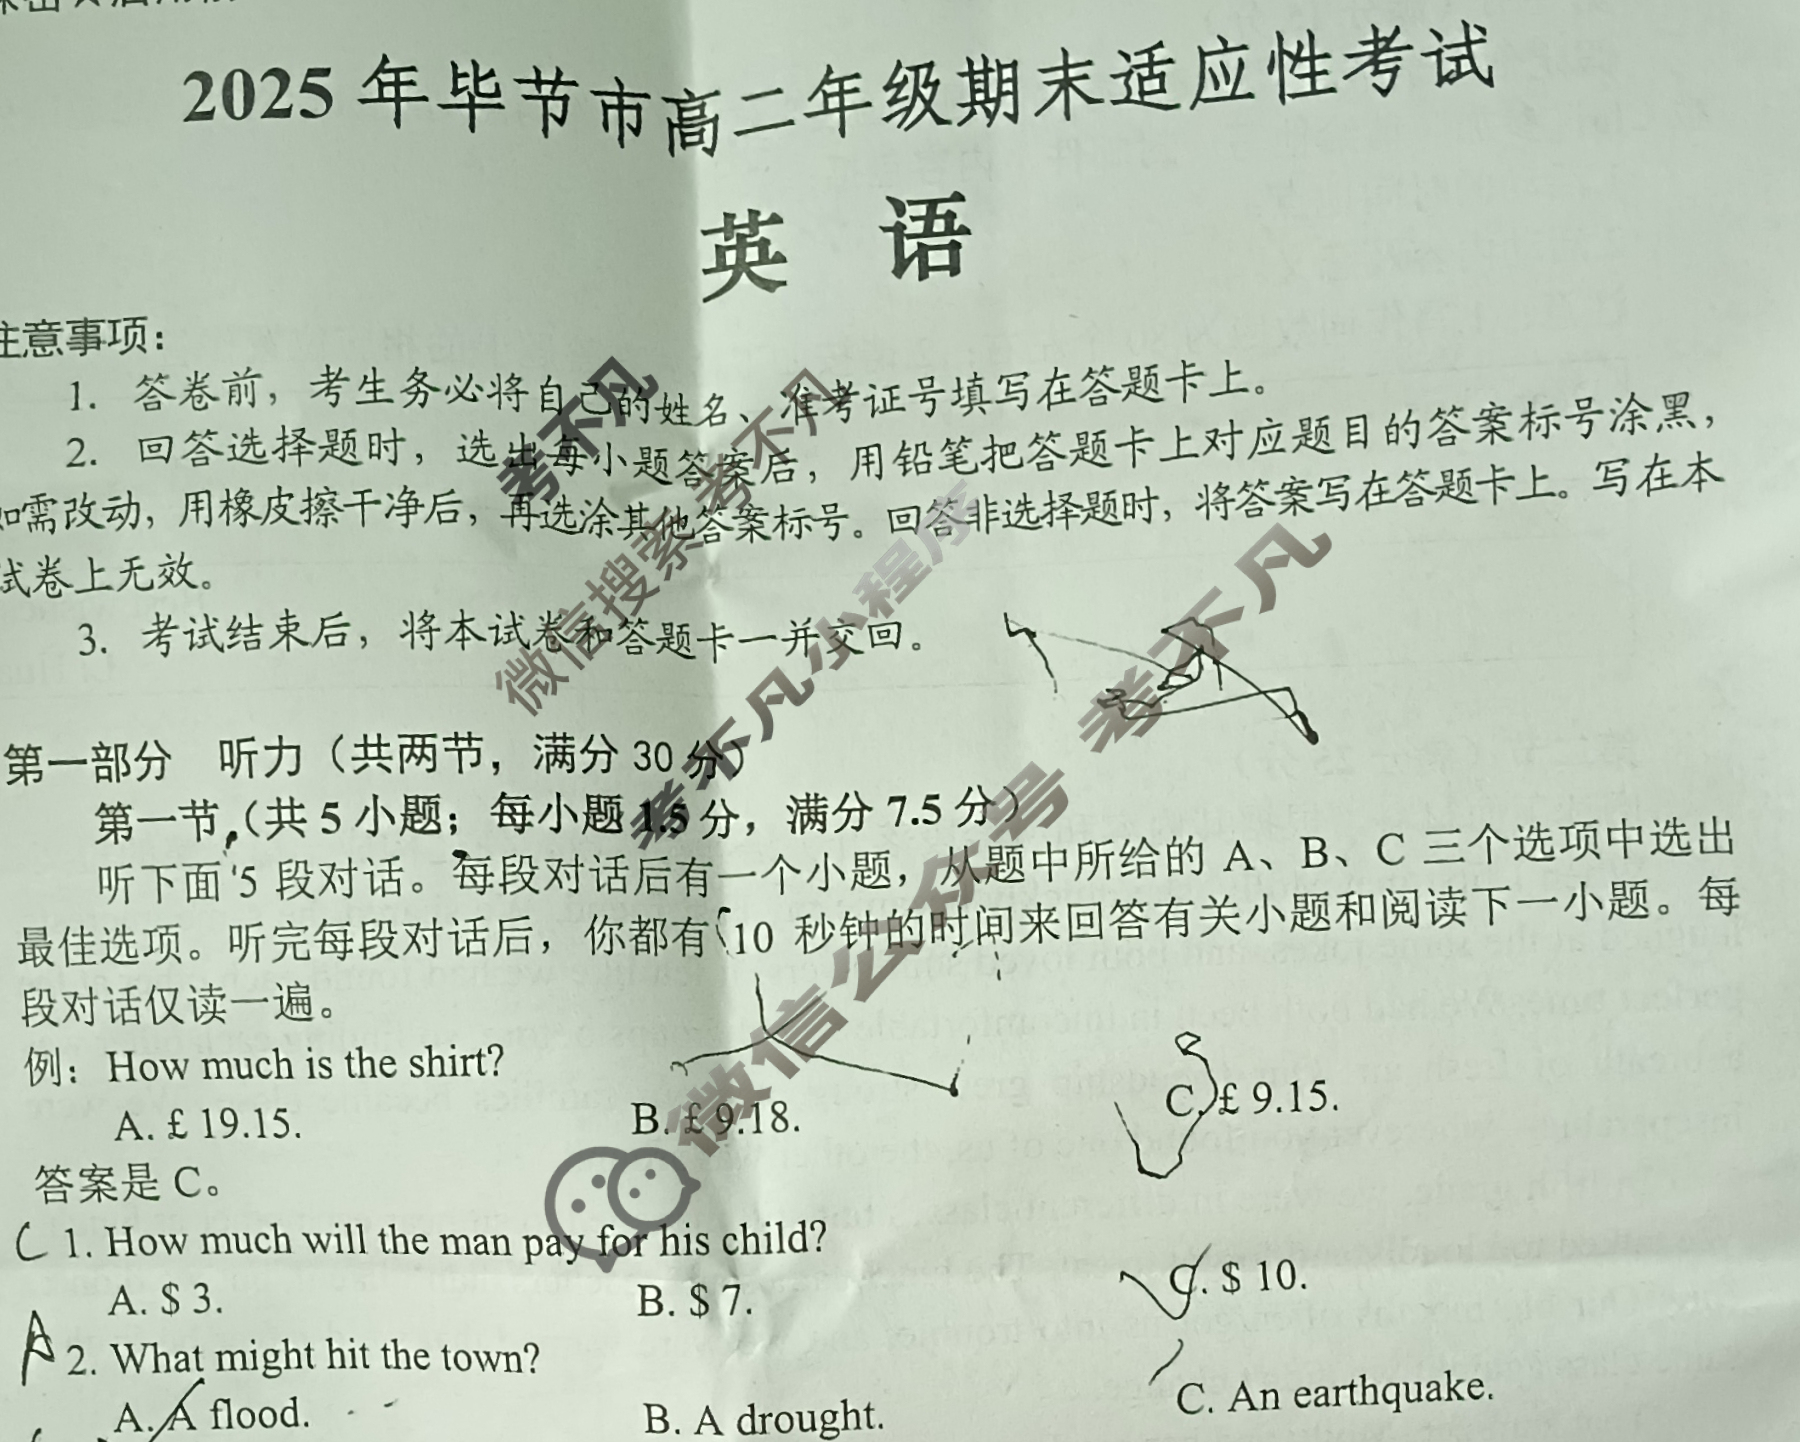 2025年毕节市高二年级期末适应性考试
英 语
注意事项：
1. 答卷前，考生务必将自己的姓名、准考证号填写在答题卡上。
2. 回答选择题时，选出每小题答案后，用铅笔把答题卡上对应题目的答案标号涂黑，
如需改动，用橡皮擦干净后，再选涂其他答案标号。回答非选择题时，将答案写在答题卡上。写在本
试卷上无效。
3. 考试结束后，将本试卷和答题卡一并交回。
考不凡
微信搜索 考不凡
考不凡小程序
微信公众号 考不凡
第一部分 听力（共两节，满分 30 分）
第一节（共 5 小题；每小题 1.5 分，满分 7.5 分）
听下面 5 段对话。每段对话后有一个小题，从题中所给的 A、B、C 三个选项中选出
最佳选项。听完每段对话后，你都有 10 秒钟的时间来回答有关小题和阅读下一小题。每
段对话仅读一遍。
例：How much is the shirt?
A. £ 19.15. B. £ 9.18. C. £ 9.15.
答案是 C。
C 1. How much will the man pay for his child?
A. $ 3. B. $ 7. C. $ 10.
A 2. What might hit the town?
A. A flood. B. A drought. C. An earthquake.